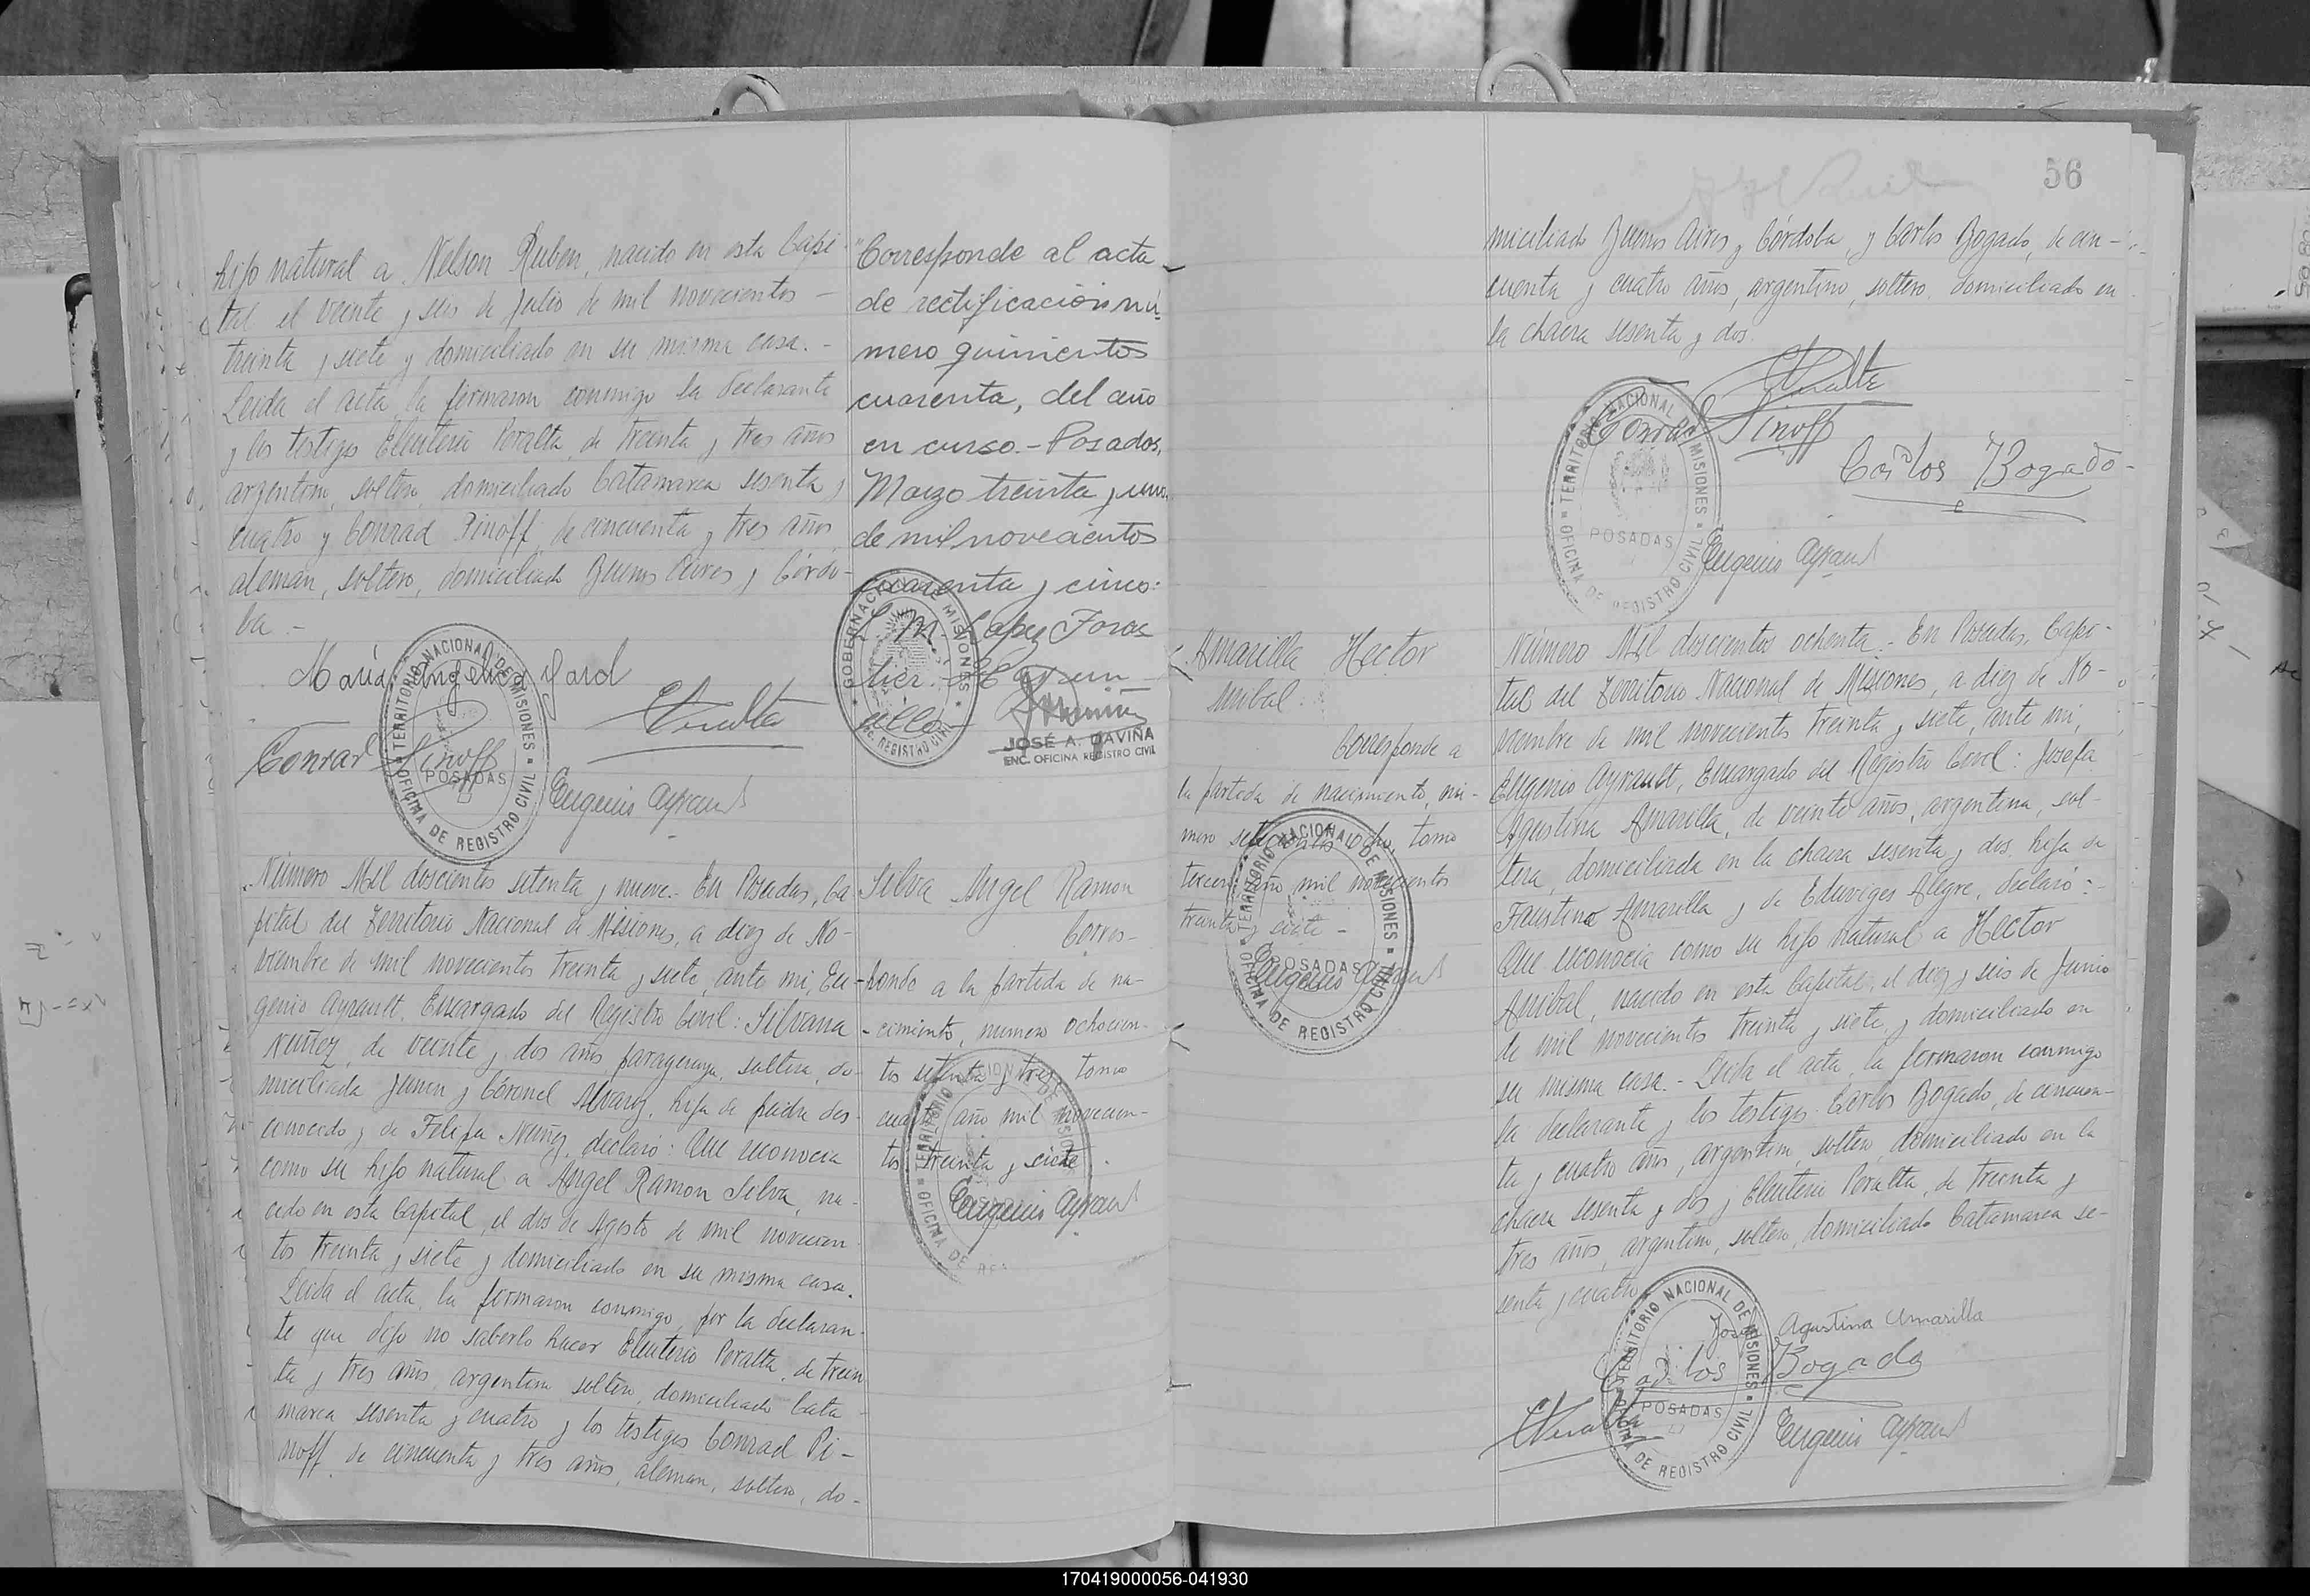 hijo natural a Nelson Ruben, nacido en esta Capi-
tal el veinte y seis de Julio de mil novecientos -
treinta y siete y domiciliado en su misma casa. -
Leida el acta, la firmaron conmigo la declarante
y los testigos Eleuterio Peralta, de treinta y tres años
argentino, soltero, domiciliado Catamarca sesenta y
cuatro y Conrad Pinoff, de cincuenta y tres años
aleman, soltero, domiciliado Buenos Aires y Córdo-
ba -
María Angelica
Conrad Pinoff
EPeralta
Eugenio Ayrault
TERRITORIO NACIONAL DE MISIONES
POSADAS
OFICINA DE REGISTRO CIVIL
Número Mil doscientos setenta y nueve.- En Posadas, Ca-
pital del Territorio Nacional de Misiones, a diez de No-
viembre de mil novecientos treinta y siete, ante mi, Eu-
genio Ayrault, Encargado del Registro Civil: Silvana
Nuñez, de veinte y dos años, paraguaya, soltera, do-
miciliada Junin y Coronel Alvarez, hija de padre des-
conocido y de Felipa Nuñez, declaró: Que reconocia
como su hijo natural a Angel Ramon Silva, na-
cido en esta Capital, el dos de Agosto de mil novecien-
tos treinta y siete y domiciliado en su misma casa.
Leida el acta, la firmaron conmigo, por la declaran-
te que dijo no saberlo hacer Eleuterio Peralta, de trein
ta y tres años, argentino, soltero, domiciliado Cata-
marca sesenta y cuatro y los testigos Conrad Pi-
noff, de cincuenta y tres años, aleman, soltero, do-
"Corresponde al acta
de rectificación nú-
mero quinientos
cuarenta, del año
en curso.- Posadas,
Marzo treinta y uno
de mil novecientos
cuarenta y cinco:
L. M. Lopez Foras
sello
GOBERNACION DE MISIONES
REGISTRO CIVIL
JOSÉ A. DAVIÑA
ENC. OFICINA REGISTRO CIVIL
Silva Angel Ramon
Corres-
ponde a la partida de na-
cimiento, numero ochocien-
tos setenta y tres tomo
cuarto año mil novecien-
tos treinta y siete.
Eugenio Ayrault
TERRITORIO NACIONAL DE MISIONES
OFICINA DE
56
miciliado Buenos Aires y Córdoba, y Carlos Bogado, de cin-
cuenta y cuatro años, argentino, soltero, domiciliado en
la chacra sesenta y dos.
EPeralta
Conrad Pinoff
Carlos Bogado
Eugenio Ayrault
TERRITORIO NACIONAL DE MISIONES
POSADAS
OFICINA DE REGISTRO CIVIL
Amarilla Hector
Anibal.
Corresponde a
la partida de nacimiento, nú-
mero setecientos ocho, tomo
tercero año mil novecientos
treinta y siete -
Eugenio Ayrault
TERRITORIO NACIONAL DE MISIONES
POSADAS
OFICINA DE REGISTRO CIVIL
Número Mil doscientos ochenta.- En Posadas, Capi-
tal del Territorio Nacional de Misiones, a diez de No-
viembre de mil novecientos treinta y siete, ante mi,
Eugenio Ayrault, Encargado del Registro Civil: Josefa
Agustina Amarilla, de veinte años, argentina, sol-
tera, domiciliada en la chacra sesenta y dos, hija de
Faustino Amarilla y de Eduviges Alegre, declaró:-
Que reconocia como su hijo natural a Hector
Anibal, nacido en esta Capital, el diez y seis de Junio
de mil novecientos treinta y siete y domiciliado en
su misma casa.- Leida el acta, la firmaron conmigo
la declarante y los testigos Carlos Bogado, de cincuen-
ta y cuatro años, argentino, soltero, domiciliado en la
chacra sesenta y dos y Eleuterio Peralta, de treinta y
tres años, argentino, soltero, domiciliado Catamarca se-
senta y cuatro.
Josefa Agustina Amarilla
Carlos Bogado
EPeralta
Eugenio Ayrault
TERRITORIO NACIONAL DE MISIONES
POSADAS
OFICINA DE REGISTRO CIVIL
170419000056-041930